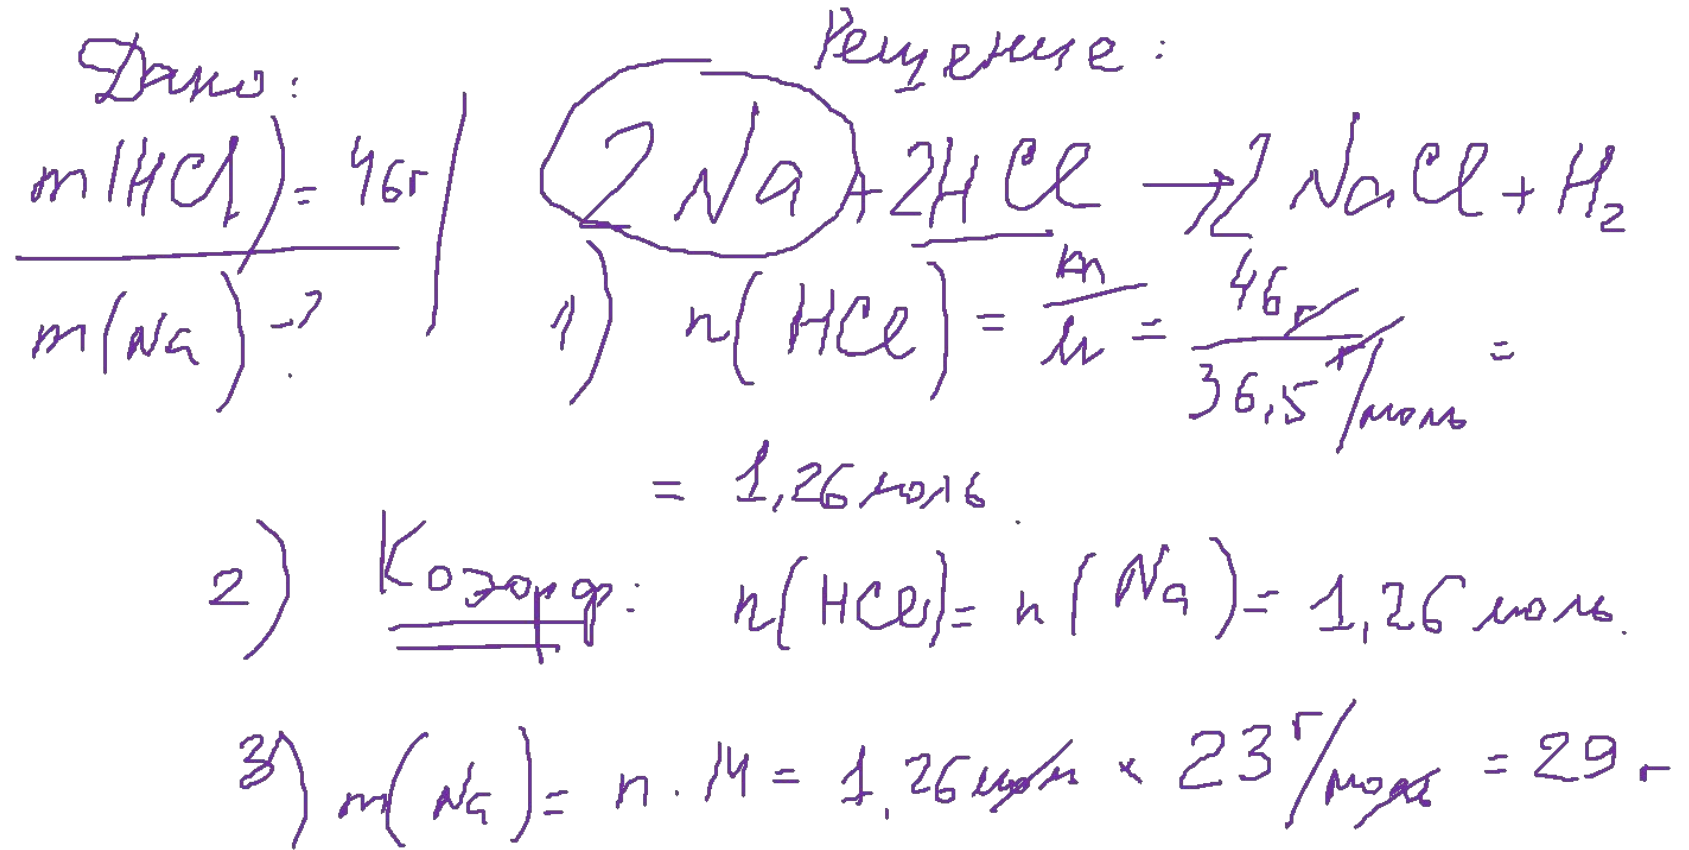 Дано: Решение:
m(HCl) = 46г 2Na + 2HCl → 2NaCl + H₂
m(Na) -? 1) n(HCl) = m/M = 46г/36,5 г/моль =
= 1,26 моль.
2) Коэфф: n(HCl) = n(Na) = 1,26 моль.
3) m(Na) = n · M = 1,26 моль × 23 г/моль = 29 г